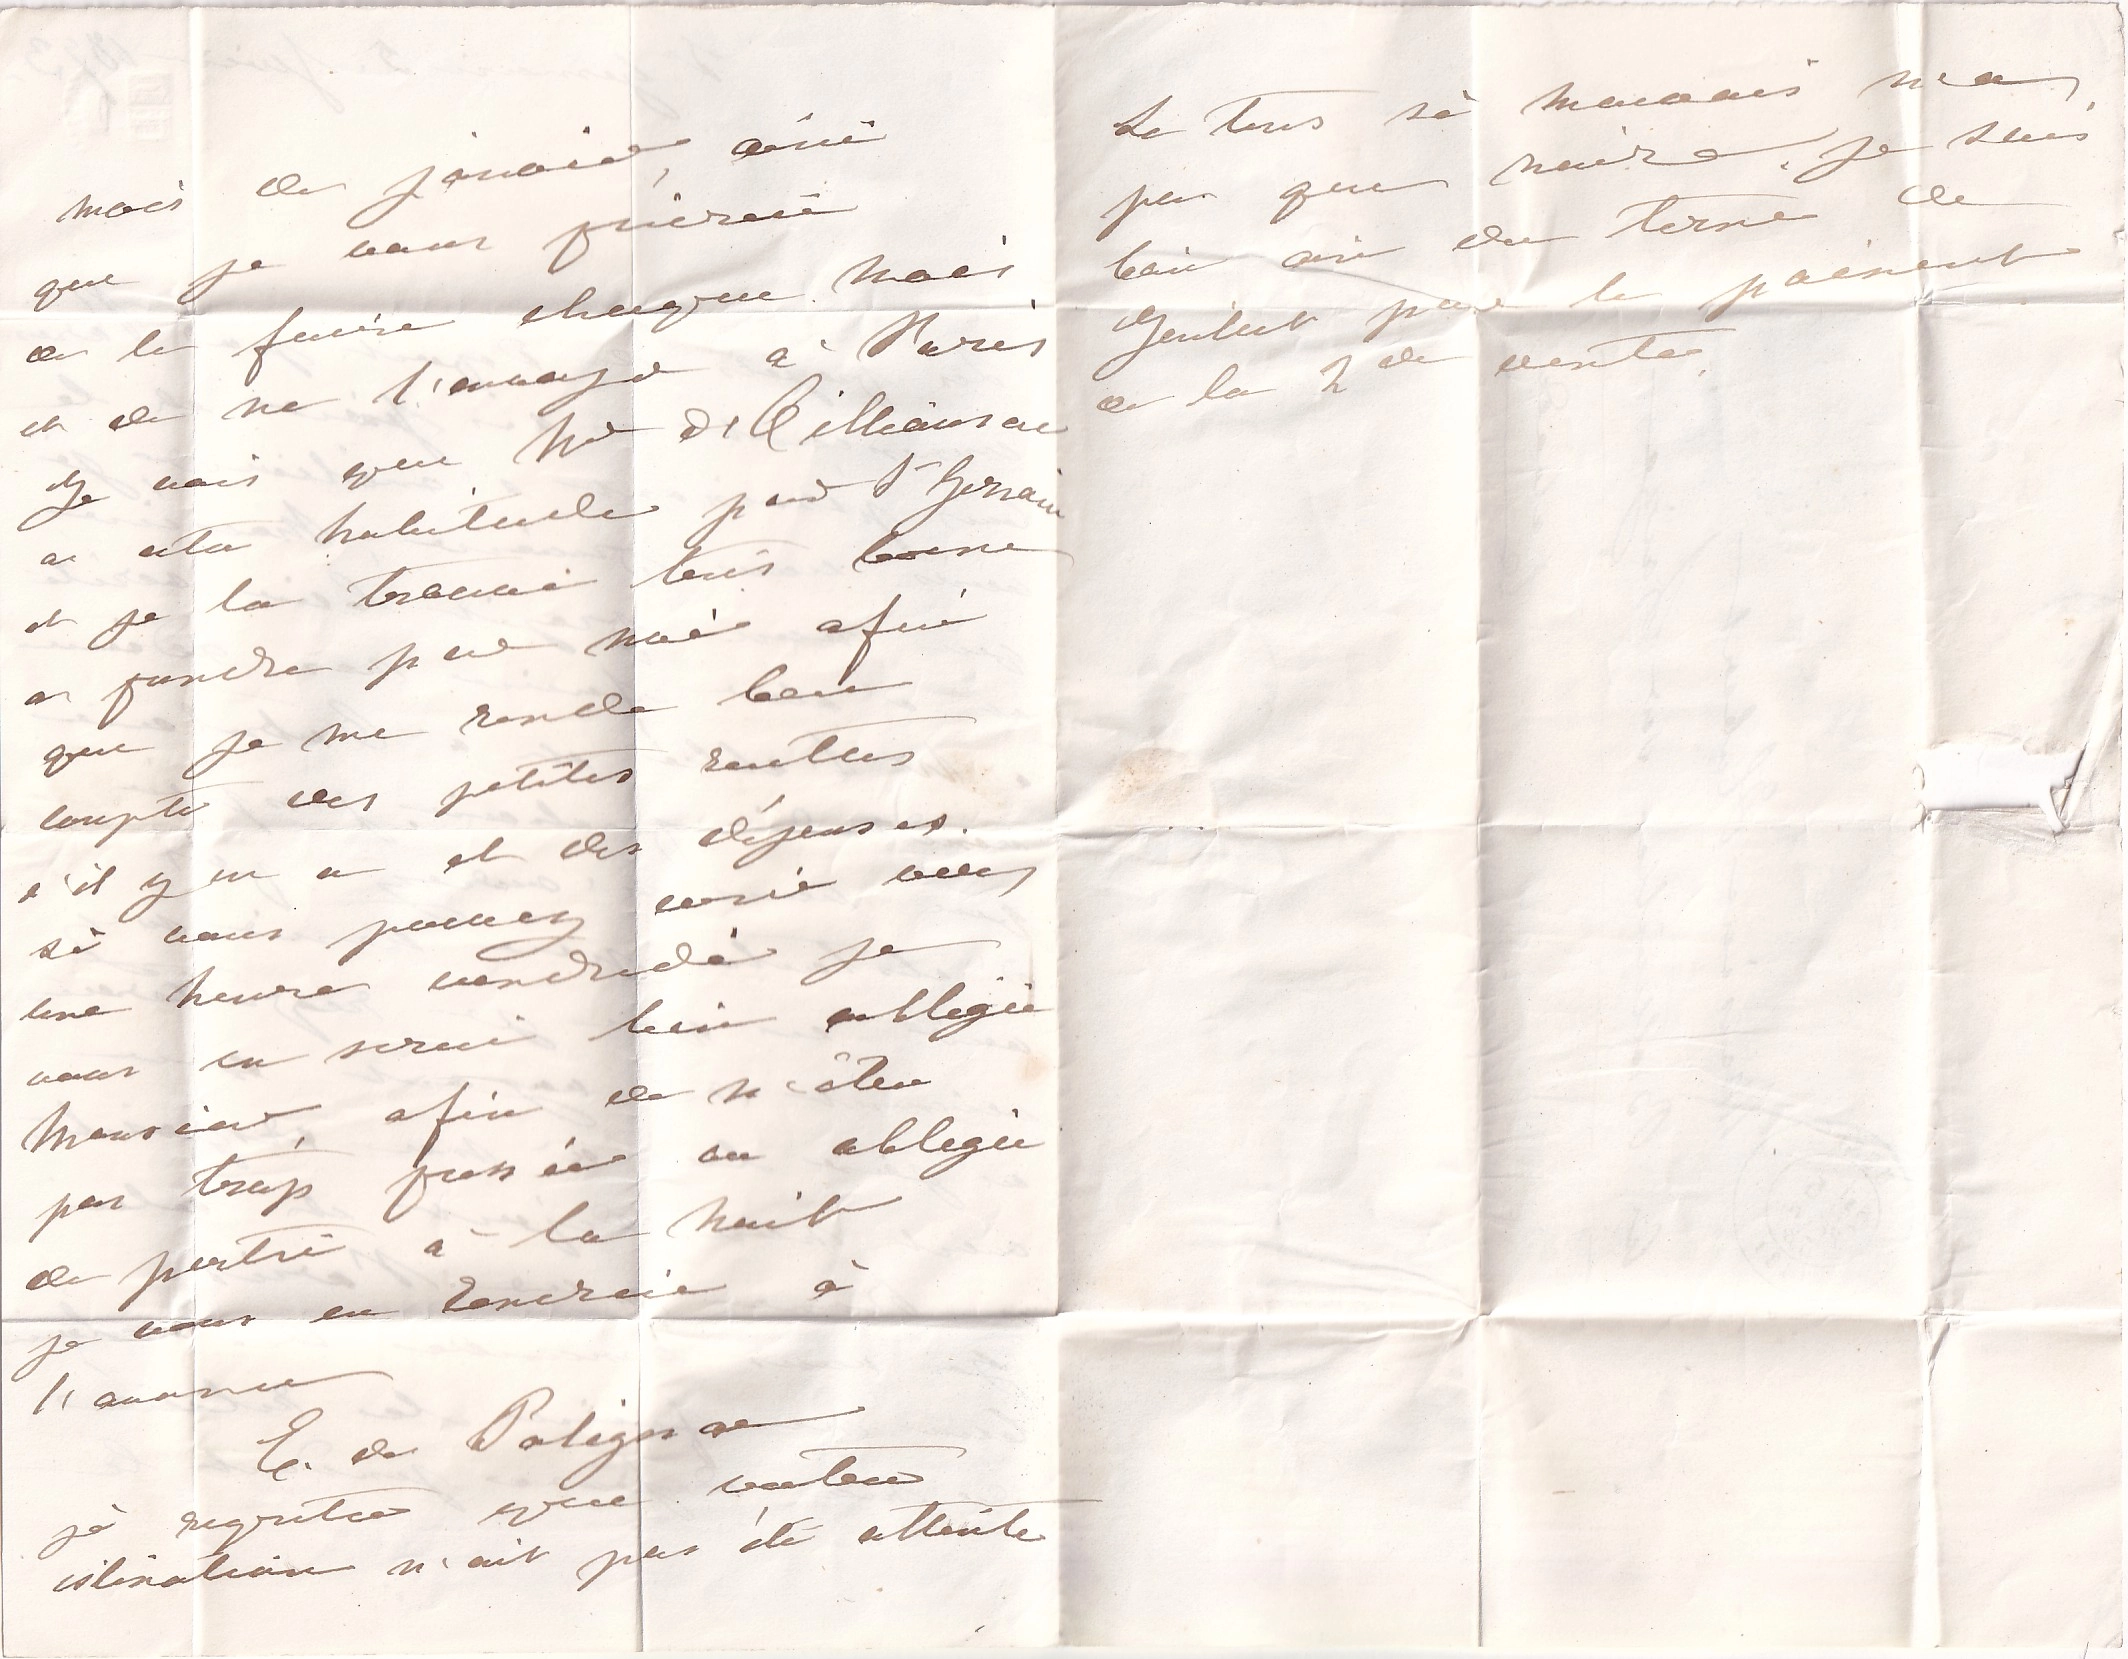 mois de janvier, ainsi
que je vous prierai
de le faire chaque mois
et de me l'envoyer à Paris
Je vois que Mr de
a été habituée par St Germain
et je la trouve très bonne
a prendre pour moi afin
que je me rende bien
compte des petites rentes
s'il y en a et des dépenses.
si vous pouvez venir vers
une heure vendredi je
vous en serai bien obligée
Monsieur, afin de n'être
pas trop pressée ou obligée
de partir à la nuit
je vous en rendrai à
l'avance
E. de Polignac
je regrette que votre
estimation n'ait pas été atteinte
Le tems si mauvais n'a
pu que nuire. je suis
bien aise du terme de
Juillet pour le paiement
de la 2de vente.